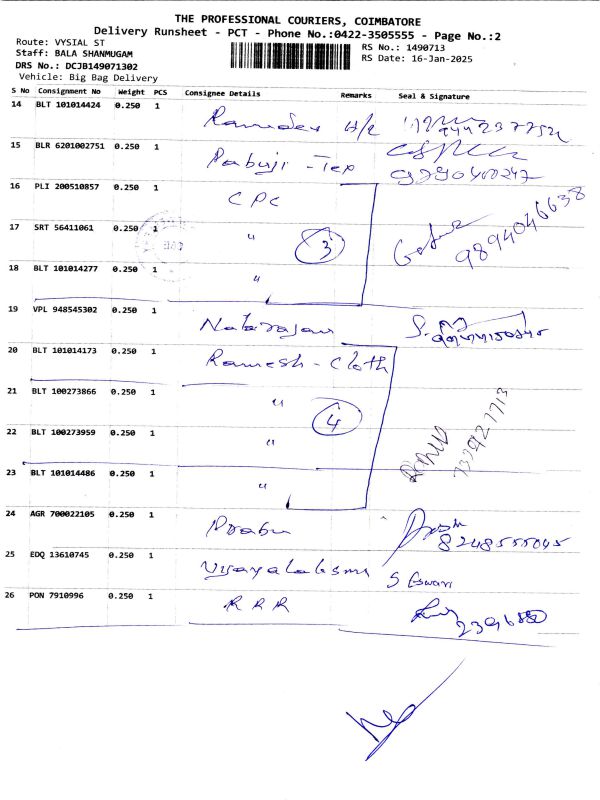 THE PROFESSIONAL COURIERS, COIMBATORE
Delivery Runsheet - PCT - Phone No.:0422-3505555 - Page No.:2
Route: VYSIAL ST
Staff: BALA SHANMUGAM
DRS No.: DCJB149071302
Vehicle: Big Bag Delivery
RS No.: 1490713
RS Date: 16-Jan-2025
S No Consignment No Weight PCS Consignee Details Remarks Seal & Signature
14 BLT 101014424 0.250 1
15 BLR 6201002751 0.250 1 Pabuji - Tex
16 PLI 200510857 0.250 1 CPC
17 SRT 56411061 0.250 1 "
3
9894046638
18 BLT 101014277 0.250 1 "
19 VPL 948545302 0.250 1 Natarajan
20 BLT 101014173 0.250 1 Ramesh - Cloth
21 BLT 100273866 0.250 1 "
4
22 BLT 100273959 0.250 1 "
23 BLT 101014486 0.250 1 "
24 AGR 700022105 0.250 1 Prabu
8248555045
25 EDQ 13610745 0.250 1 Vijayalaksmi
26 PON 7910996 0.250 1 R R R